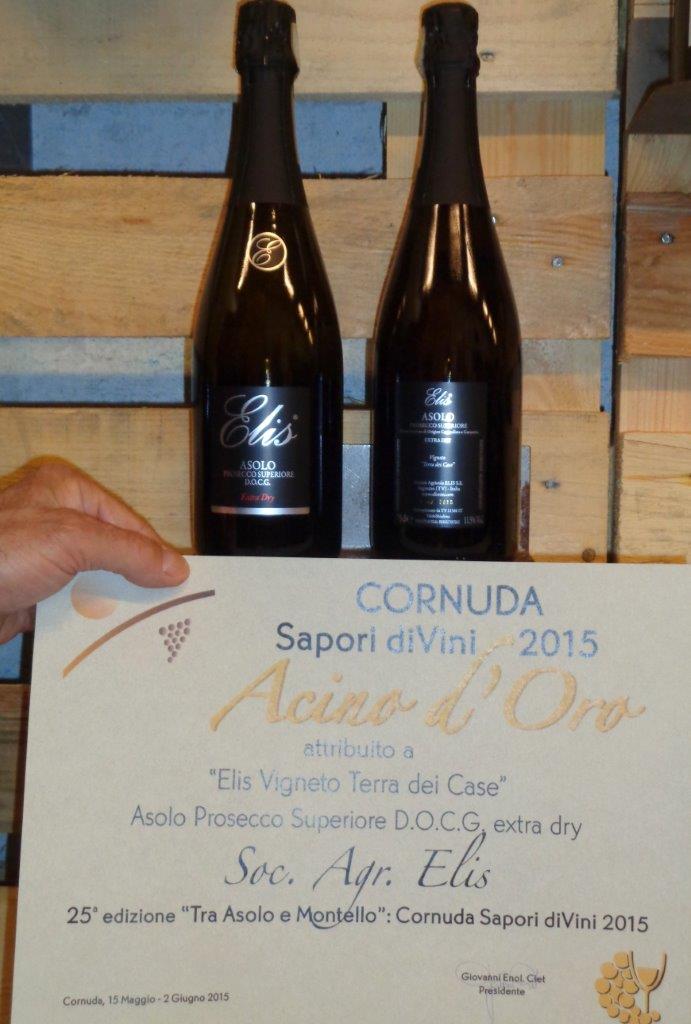 E
Elis
ASOLO
PROSECCO SUPERIORE
D.O.C.G.
Extra Dry
Elis
ASOLO
PROSECCO SUPERIORE
EXTRA DRY
Vigneto
"Terra dei Case"
CORNUDA
Sapori diVini 2015
Acino d'Oro
attribuito a
"Elis Vigneto Terra dei Case"
Asolo Prosecco Superiore D.O.C.G. extra dry
Soc. Agr. Elis
25ª edizione "Tra Asolo e Montello": Cornuda Sapori diVini 2015
Giovanni Enol. Ciet
Presidente
Cornuda, 15 Maggio - 2 Giugno 2015